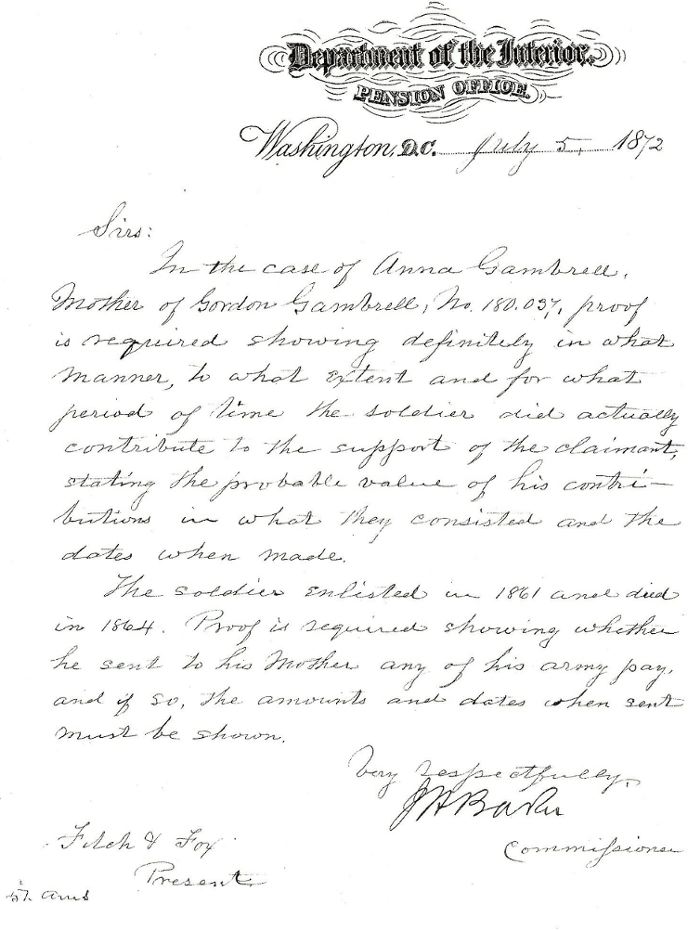 Department of the Interior.
PENSION OFFICE.
Washington, D.C. July 5, 1872
Sirs:
In the case of Anna Gambrell,
Mother of Gordon Gambrell, No. 180.037, proof
is required showing definitely in what
manner, to what extent and for what
period of time the soldier did actually
contribute to the support of the claimant,
stating the probable value of his contri-
butions in what they consisted and the
dates when made.
The soldier enlisted in 1861 and died
in 1864. Proof is required showing whether
he sent to his Mother any of his army pay,
and if so, the amounts and dates when sent
must be shown.
Very respectfully,
J H Baker
Commissioner
Fitch & Fox
Present